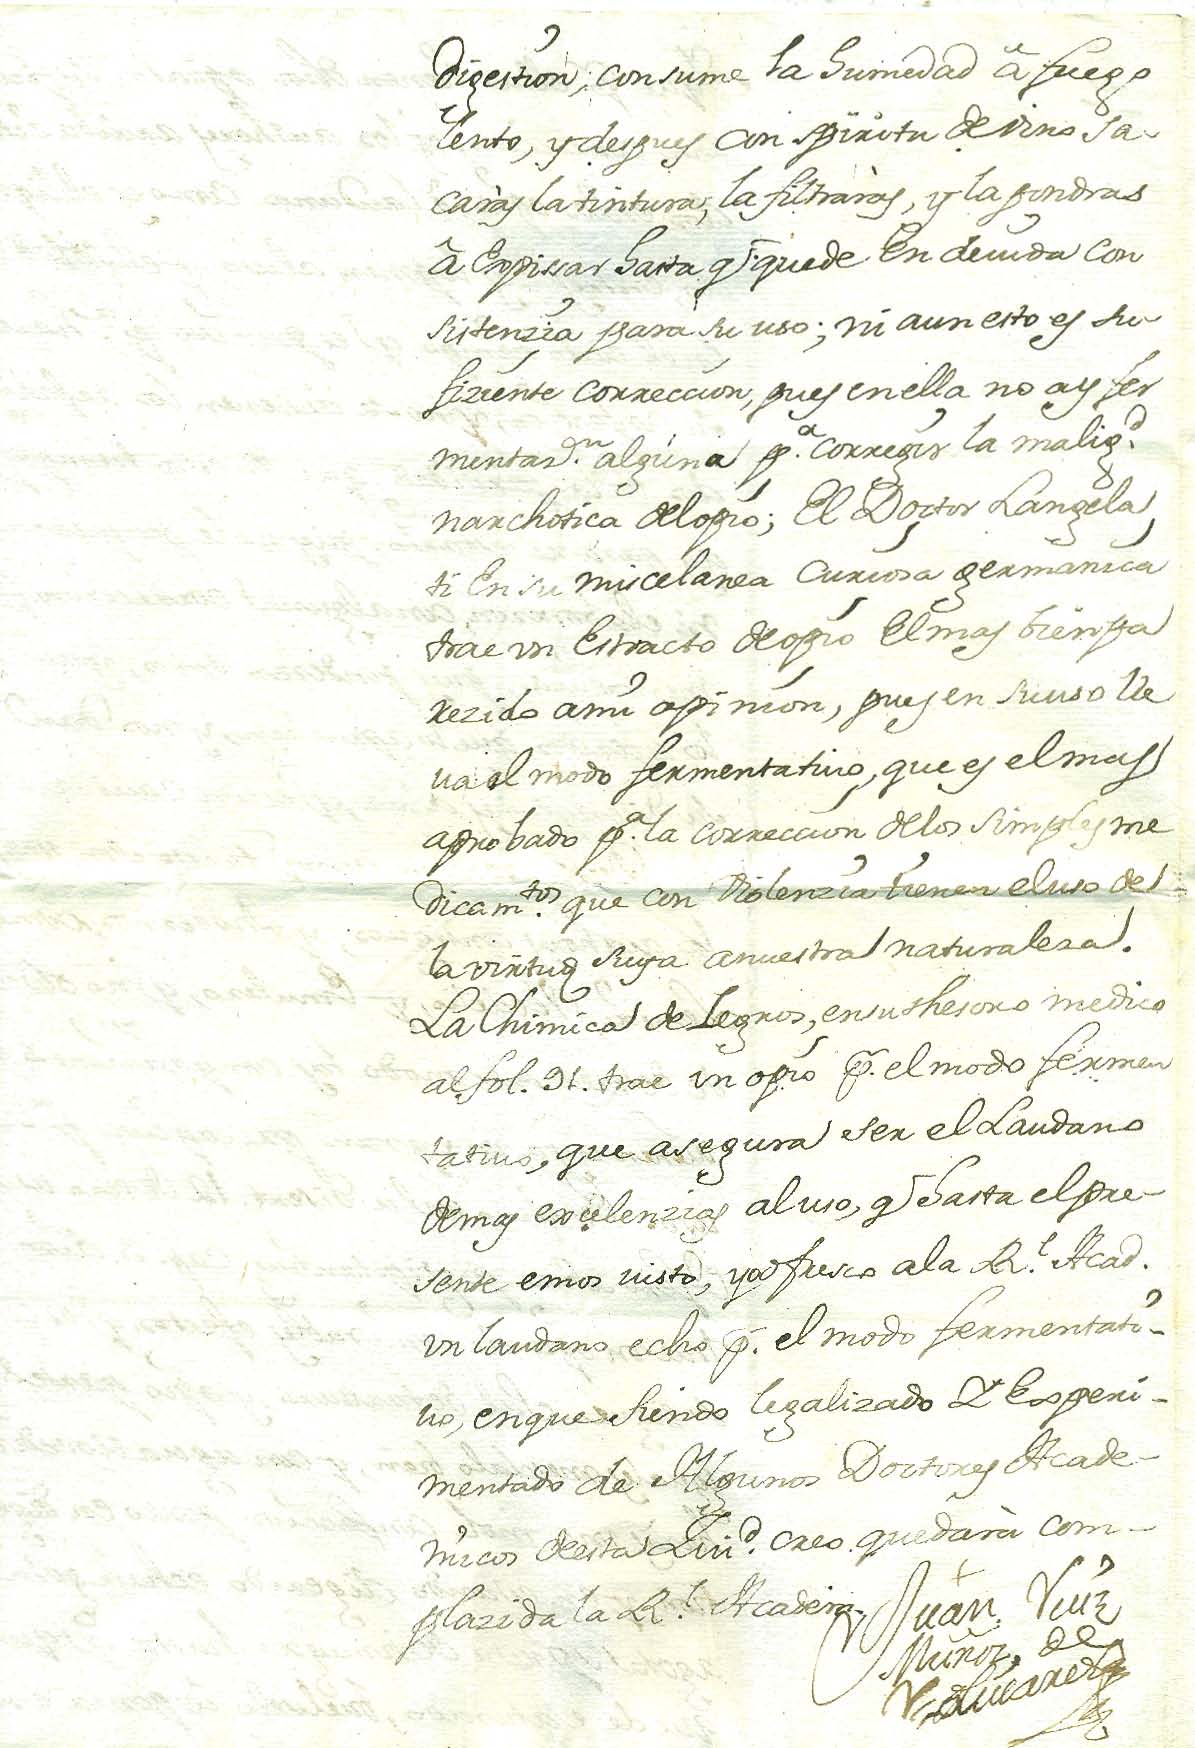 digestion, consume la humedad â fuego
lento, y despues con spiritu de vino sa-
caràs la tintura, la filtraràs, y la pondras
â Expissar hasta q̃ quede En devida con
sistenzia para su uso; ni aun esto es su-
fiziente correccion, pues en ella no ay fer
mentaz.n alguna p.a corregir la malig.d
narchotica del opio; El Doctor Langela
ti En su miscelanea Curiosa germanica
trae vn Estracto de opio El mas bien pa
rezido a mi opinion, pues en su uso lle
va el modo fermentativo, que es el mas
aprobado p.a la correccion de los simples me
dicam.tos que con Violenzia tienen el uso de
la virtud suya a nuestra naturaleza.
La Chimica de Legros, en su thesoro medico
al fol. 91. trae vn opio p.r el modo fermen
tativo, que asegura ser el Laudano
de mas excelenzias al uso, q̃ hasta el pre-
sente emos visto, yo ofresco a la R.l Acad.
vn laudano echo p.r el modo fermentati-
vo, en que siendo legalizado Y Experi-
mentado de Algunos Doctores Acade-
micos de esta Ziu.d creo quedarà com-
plazida la R.l Academ.
Juan Ruiz
Muñoz, de